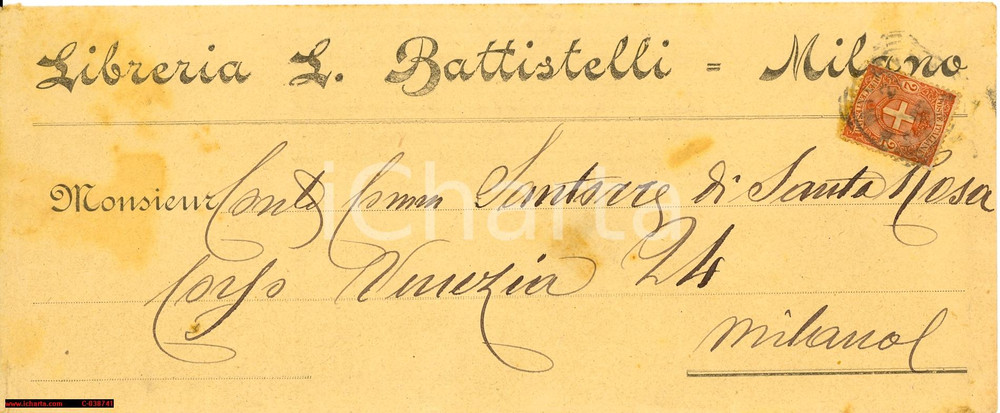 Libreria L. Battistelli = Milano
Monsieur Conte Comm Santorre di Santa Rosa
Corso Venezia 24
Milano
iCharta
www.icharta.com C-838741